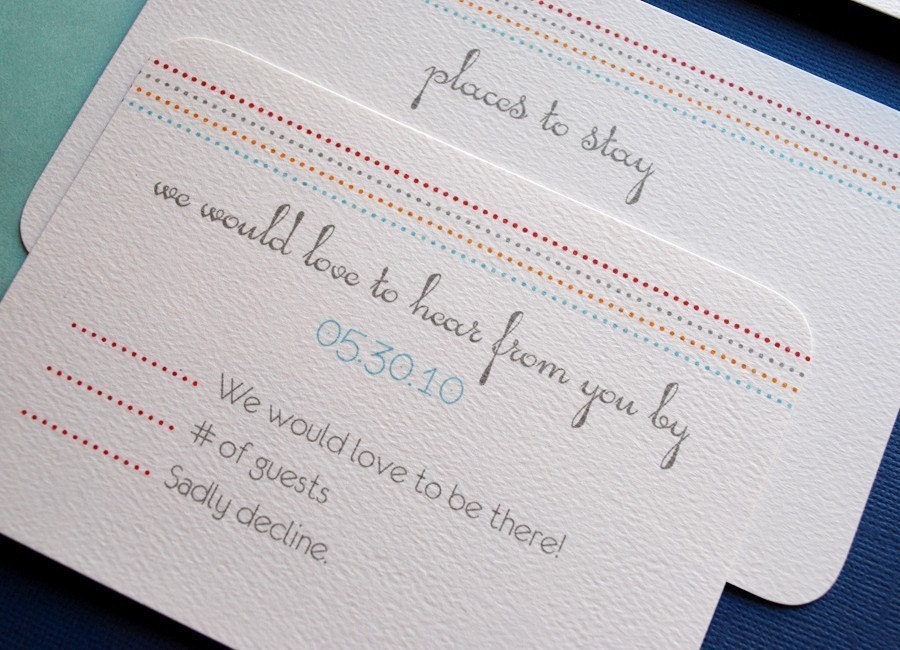 places to stay
we would love to hear from you by
05.30.10
We would love to be there!
# of guests
Sadly decline.